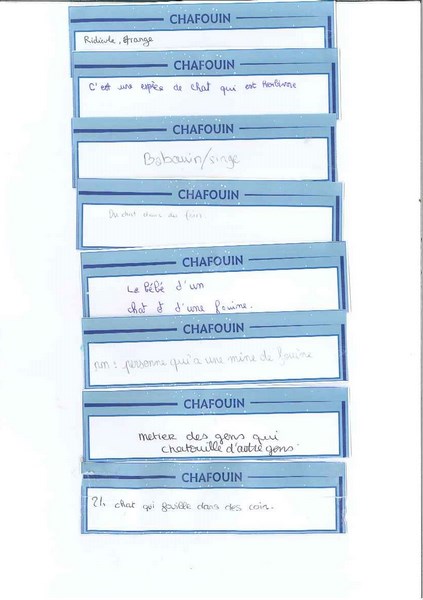 CHAFOUIN
Ridicule, étrange
CHAFOUIN
C'est une espèce de chat qui est
CHAFOUIN
Babouin/singe
CHAFOUIN
Du chat dans du foin
CHAFOUIN
Le bébé d'un
chat et d'une fouine.
CHAFOUIN
nm : personne qui a une mine de fouine
CHAFOUIN
metier des gens qui
chatouille d'autre gens
CHAFOUIN
chat qui fouille dans des coins.